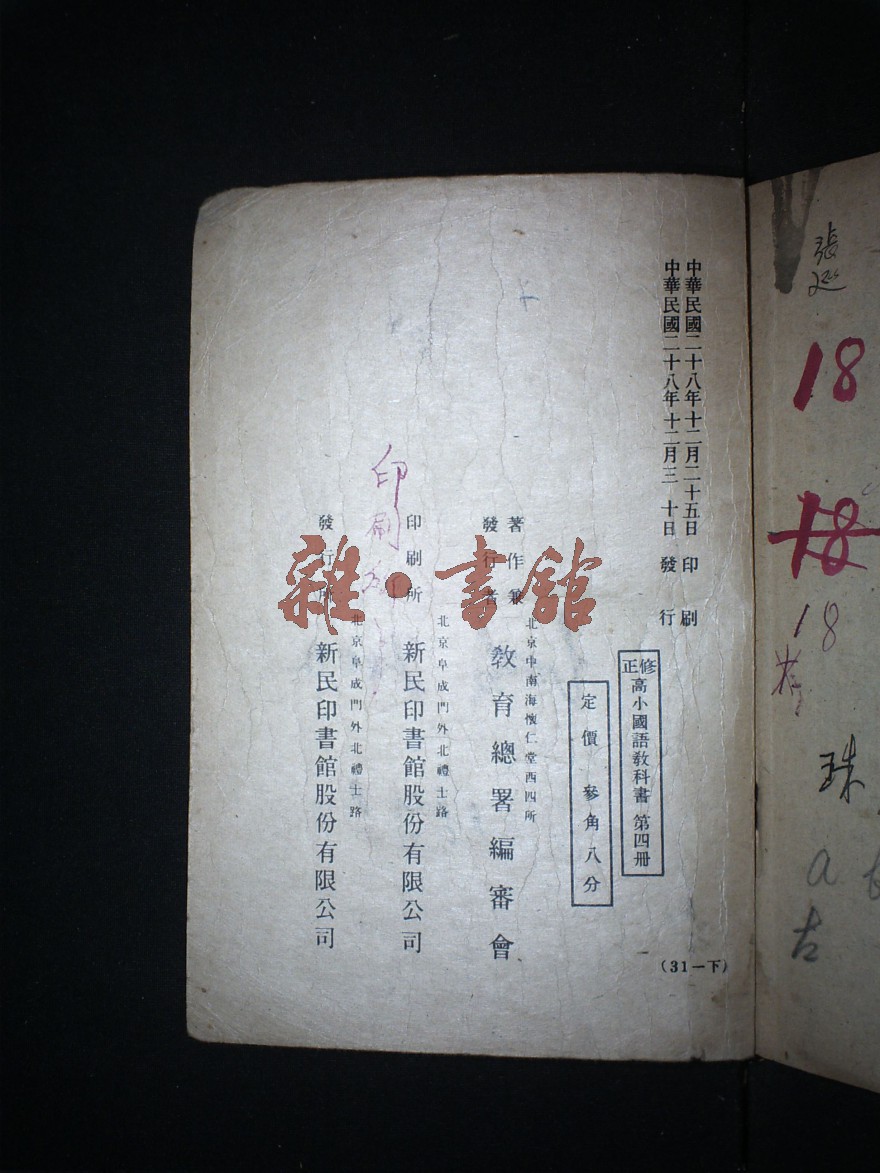 中華民國二十八年十二月二十五日 印刷
中華民國二十八年十二月三十日 發行
修正 高小國語教科書 第四册
定價 參角八分
北京中南海懷仁堂西四所
著作兼發行者 教育總署編審會
北京阜成門外北禮士路
印刷所 新民印書館股份有限公司
北京阜成門外北禮士路
發行所 新民印書館股份有限公司
(31—下)
印刷
雜·書館
張延
18
18
18
珠
a
古